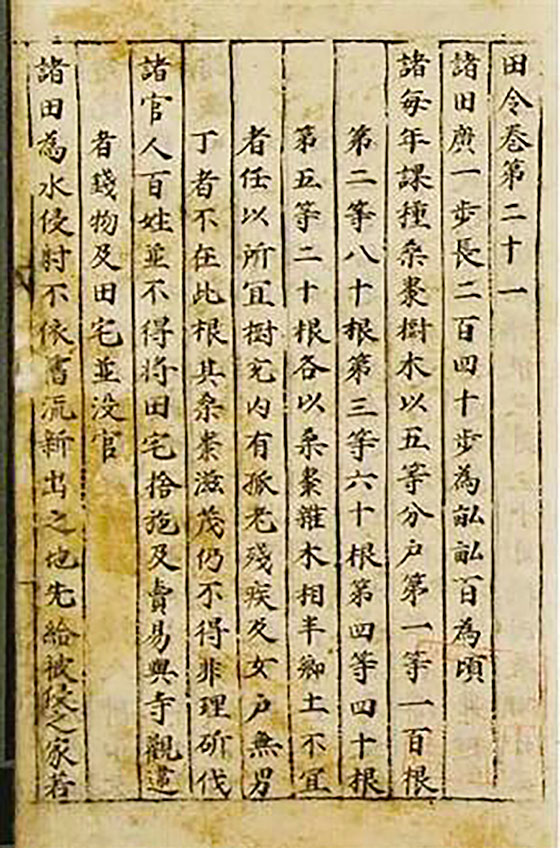 田令卷第二十一
諸田廣一步長二百四十步為畝畝百為頃
諸每年課種桑棗樹木以五等分户第一等一百根
第二等八十根第三等六十根第四等四十根
第五等二十根各以桑棗雜木相半鄉土不宜
者任以所宜樹充内有孤老殘疾及女户無男
丁者不在此根其桑棗滋茂仍不得非理斫伐
諸官人百姓並不得将田宅捨施及賣易與寺觀違
者錢物及田宅並没官
諸田為水侵射不依舊流新出之地先給被侵之家若